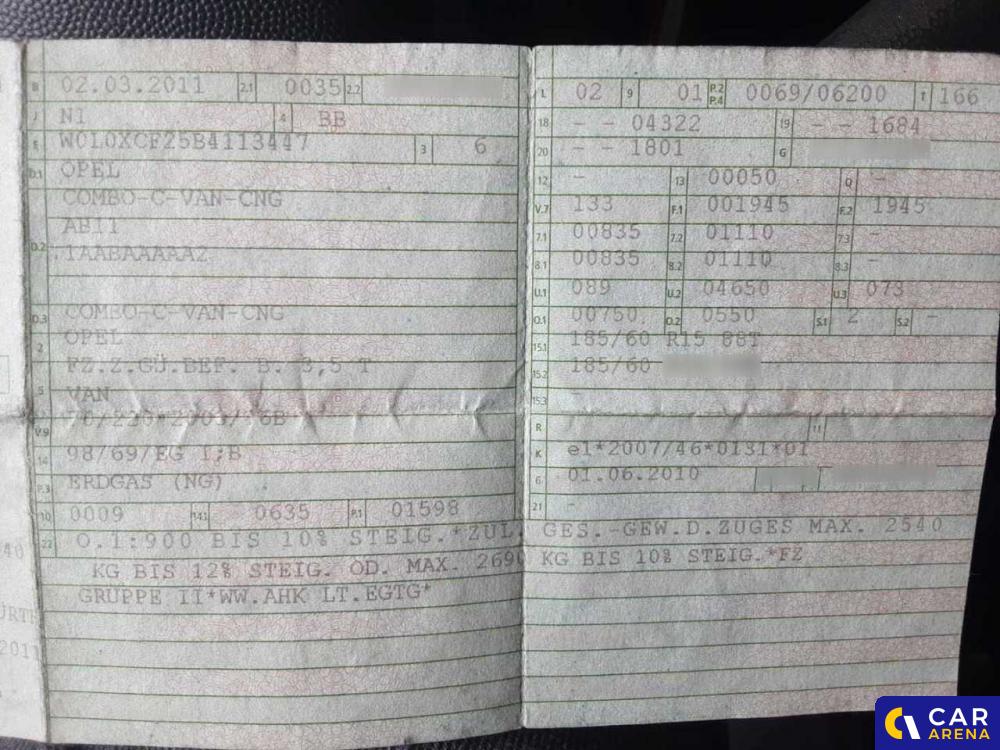 B 02.03.2011 2.1 0035 2.2
J N1 4 BB
E W0L0XCF25B4113447 3 6
D.1 OPEL
COMBO-C-VAN-CNG
AB11
D.2 1AABAAAAA2
D.3 COMBO-C-VAN-CNG
2 OPEL
FZ.Z.GÜ.BEF. B. 3,5 T
5 VAN
V.9 70/220*2003/76B
14 98/69/EG I;B
P.3 ERDGAS (NG)
10 0009 14.1 0635 P.1 01598
22 O.1:900 BIS 10% STEIG.*ZUL. GES.-GEW.D.ZUGES MAX. 2540
KG BIS 12% STEIG. OD. MAX. 2690 KG BIS 10% STEIG.*FZ
GRUPPE II*WW.AHK LT.EGTG*
L 02 9 01 P.2 P.4 0069/06200 T 166
18 - - 04322 19 - - 1684
20 - - 1801 G
12 - 13 00050 Q -
V.7 133 F.1 001945 F.2 1945
7.1 00835 7.2 01110 7.3 -
8.1 00835 8.2 01110 8.3 -
U.1 089 U.2 04650 U.3 073
O.1 00750 O.2 0550 S.1 2 S.2 -
15.1 185/60 R15 88T
15.2 185/60
15.3 -
R 11
K e1*2007/46*0131*01
6 01.06.2010
21 -
40
2011
CAR
ARENA